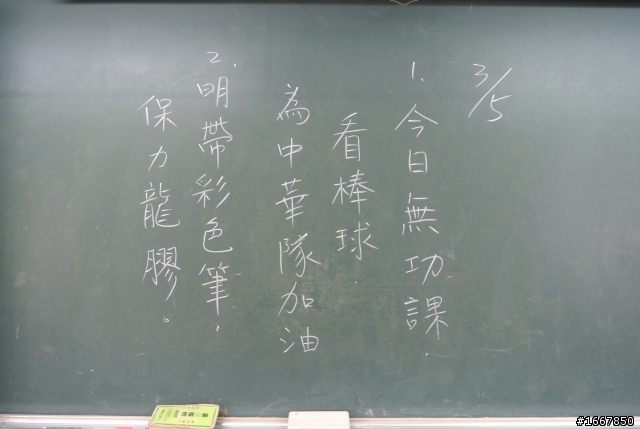 3/5
1. 今日無功課.
看棒球.
為中華隊加油
2. 明帶彩色筆,
保力龍膠。
#1667850